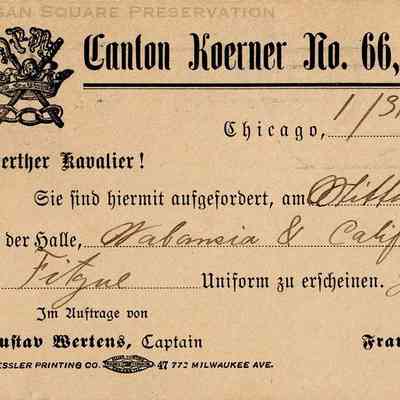 GAN SQUARE PRESERVATION
Canton Koerner No. 66,
Chicago, 1/31
erther Kavalier!
Sie sind hiermit aufgefordert, am Mitt
der Halle, Wabansia & Calif
Uniform zu erscheinen.
Im Auftrage von
ustav Wertens, Captain Fran
ESSLER PRINTING CO. 47 772 MILWAUKEE AVE.